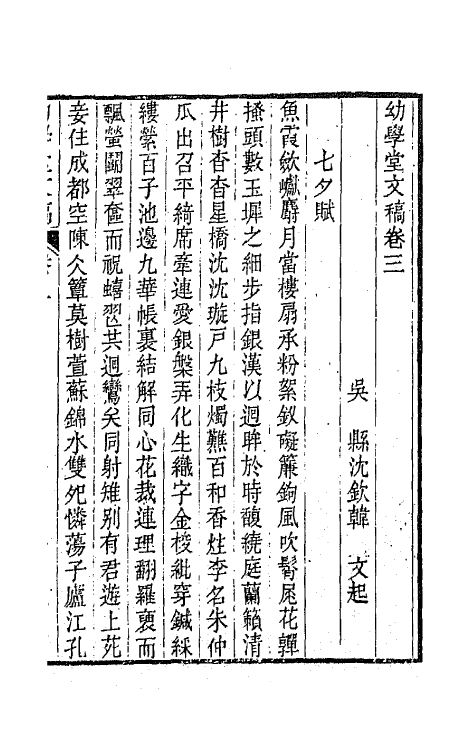 幼學堂文稿卷三
吳縣沈欽韓 文起
七夕賦
魚霞斂巘麝月當樓扇承粉絮釵礙簾鉤風吹鬢尾花嚲
搔頭數玉墀之細步指銀漢以迴眸於時馥繞庭蘭籟清
井樹杳杳星橋沈沈璇戸九枝燭爇百和香炷李名朱仲
瓜出召平綺席牽連愛銀槃弄化生織字金梭紕穿鍼綵
縷縈百子池邊九華帳裏結解同心花裁連理翻羅裒而
飄螢鬭翠奩而祝蟢翌其迴鸞矣同射雉别有君遊上苑
妾住成都空陳久簟莫樹萱蘇錦水雙死憐蕩子廬江孔